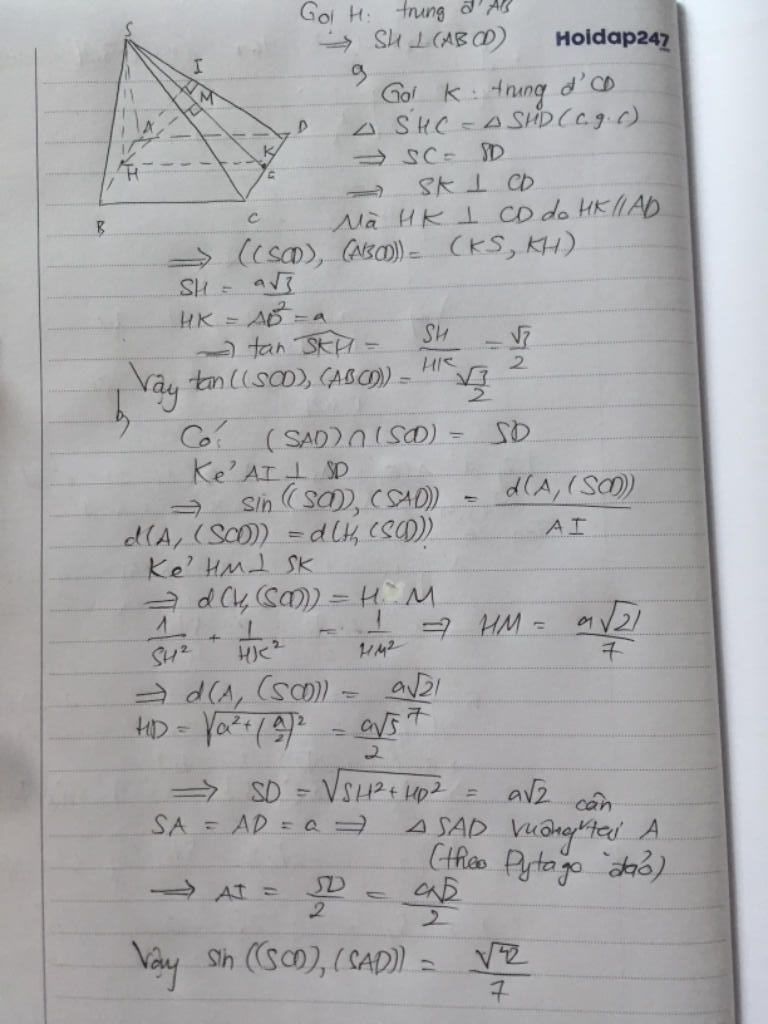 Gọi H: trung đ' AB
⇒ SH ⊥ (ABCD)
Hoidap247
a)
Gọi K: trung đ' CD
Δ SHC = Δ SHD (c.g.c)
⇒ SC = SD
⇒ SK ⊥ CD
Mà HK ⊥ CD do HK // AD
S
I
M
A
D
K
H
B
C
⇒ ((SCD), (ABCD)) = (KS, KH)
SH = a√3/2
HK = AD = a
⇒ tan SKH = SH/HK = √3/2
Vậy tan((SCD), (ABCD)) = √3/2
b)
Có: (SAD) ∩ (SCD) = SD
Kẻ AI ⊥ SD
⇒ sin((SCD), (SAD)) = d(A, (SCD))/AI
d(A, (SCD)) = d(H, (SCD))
Kẻ HM ⊥ SK
⇒ d(H, (SCD)) = HM
1/SH² + 1/HK² = 1/HM² ⇒ HM = a√21/7
⇒ d(A, (SCD)) = a√21/7
HD = √(a² + (a/2)²) = a√5/2
⇒ SD = √(SH² + HD²) = a√2
SA = AD = a ⇒ Δ SAD vuông cân tại A
(theo Pytago đảo)
⇒ AI = SD/2 = a√2/2
Vậy sin((SCD), (SAD)) = √42/7